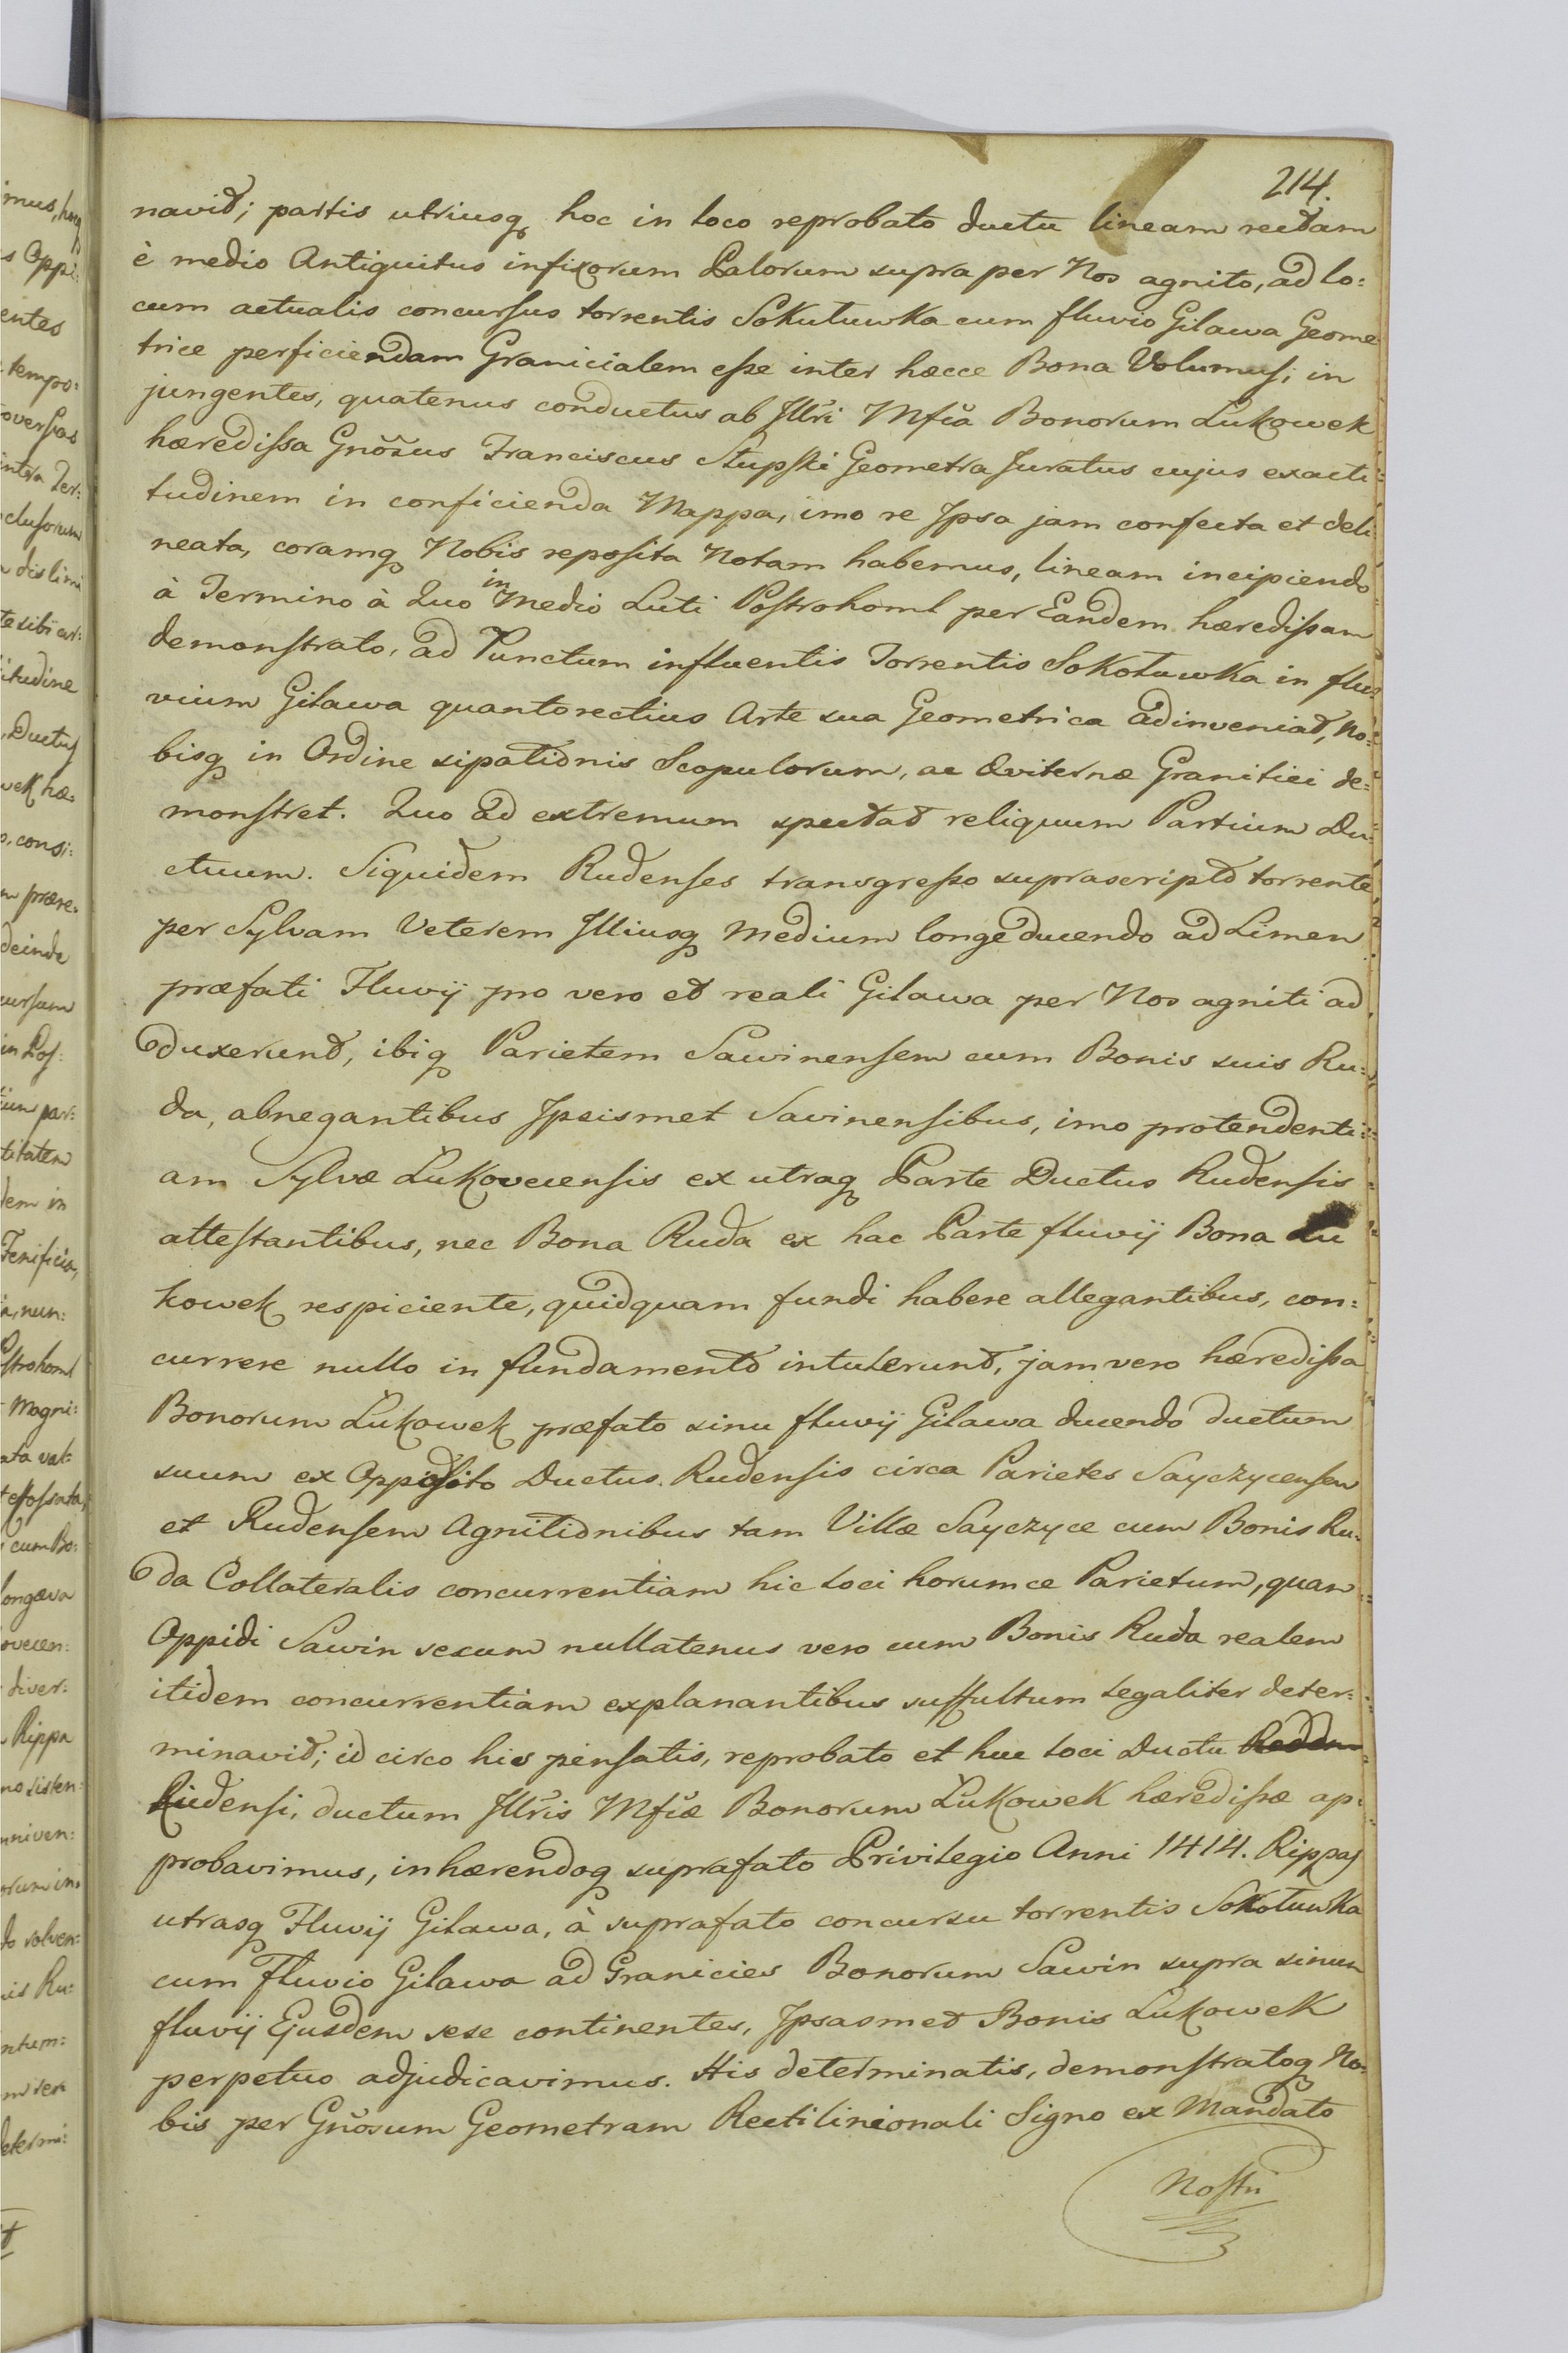 214.
navit; partis utriusq hoc in loco reprobato ductu lineam rectam
è medio Antiquitus infixorum Palorum supra per Nos agnito, ad lo:
cum actualis concursus torrentis Sokutuwka cum fluvio Gilawa Geome
trice perficiendam Granicialem esse inter hæcce Bona Volumus; in
jungentes, quatenus conductus ab Jllri Mfca Bonorum Lukowek
hæredissa Gnosus Franciscus Stupski Geometra Juratus cujus exacti:
tudinem in conficienda Mappa, imo re Jpsa jam confecta et deli
neata, coramq Nobis reposita Notam habemus, lineam incipiendo
à Termino à Quo in Medio Luti Postrohoml per Eandem hæredissam
demonstrato, ad Punctum influentis Torrentis Sokotuwka in flu:
vium Gilawa quanto rectius Arte sua Geometrica adinveniat, No:
bisq in Ordine sipationis Scopulorum, ac Æviternæ Granitiei de:
monstret. Quo ad extremum spectat reliquum Partium Du:
ctuum. Siquidem Rudenses transgresso suprascripto torrente
per Sylvam Veterem Jlliusq medium longe ducendo ad Limen
præfati Fluvij pro vero et reali Gilawa per Nos agniti ad
duxerunt, ibiq Parietem Sawinensem cum Bonis suis Ru:
da, abnegantibus Jpsismet Savinensibus, imo protendenti:
am Sylvæ Lukovecensis ex utraq Parte Ductus Rudensis
attestantibus, nec Bona Ruda ex hac Parte fluvij Bona Lu
kowek respiciente, quidquam fundi habere allegantibus, con:
currere nullo in fundamento intulerunt, jam vero hæredissa
Bonorum Lukowek præfato sinu fluvij Gilawa ducendo ductum
suum ex Opposito Ductus Rudensis circa Parietes Sayczycensem
et Rudensem Agnitionibus tam Villæ Sayczyce cum Bonis Ru:
da Collateralis concurrentiam hic loci horumce Parietum, quam
Oppidi Sawin secum nullatenus vero cum Bonis Ruda realem
itidem concurrentiam explanantibus suffultum legaliter deter:
minavit; id circo his pensatis, reprobato et huc loci Ductu
Rudensi, ductum Jllris Mfcæ Bonorum Lukowek hæredissæ ap:
probavimus, inhærendoq suprafato Privilegio Anni 1414. Rippas
utrasq Fluvij Gilawa, à suprafato concursu torrentis Sokotuwka
cum Fluvio Gilawa ad Granicies Bonorum Sawin supra sinum
fluvij Ejusdem sese continentes, Jpsasmet Bonis Lukowek
perpetuo adjudicavimus. His determinatis, demonstratoq No:
bis per Gnosum Geometram Rectilineonali Signo ex Mandato
Nostri